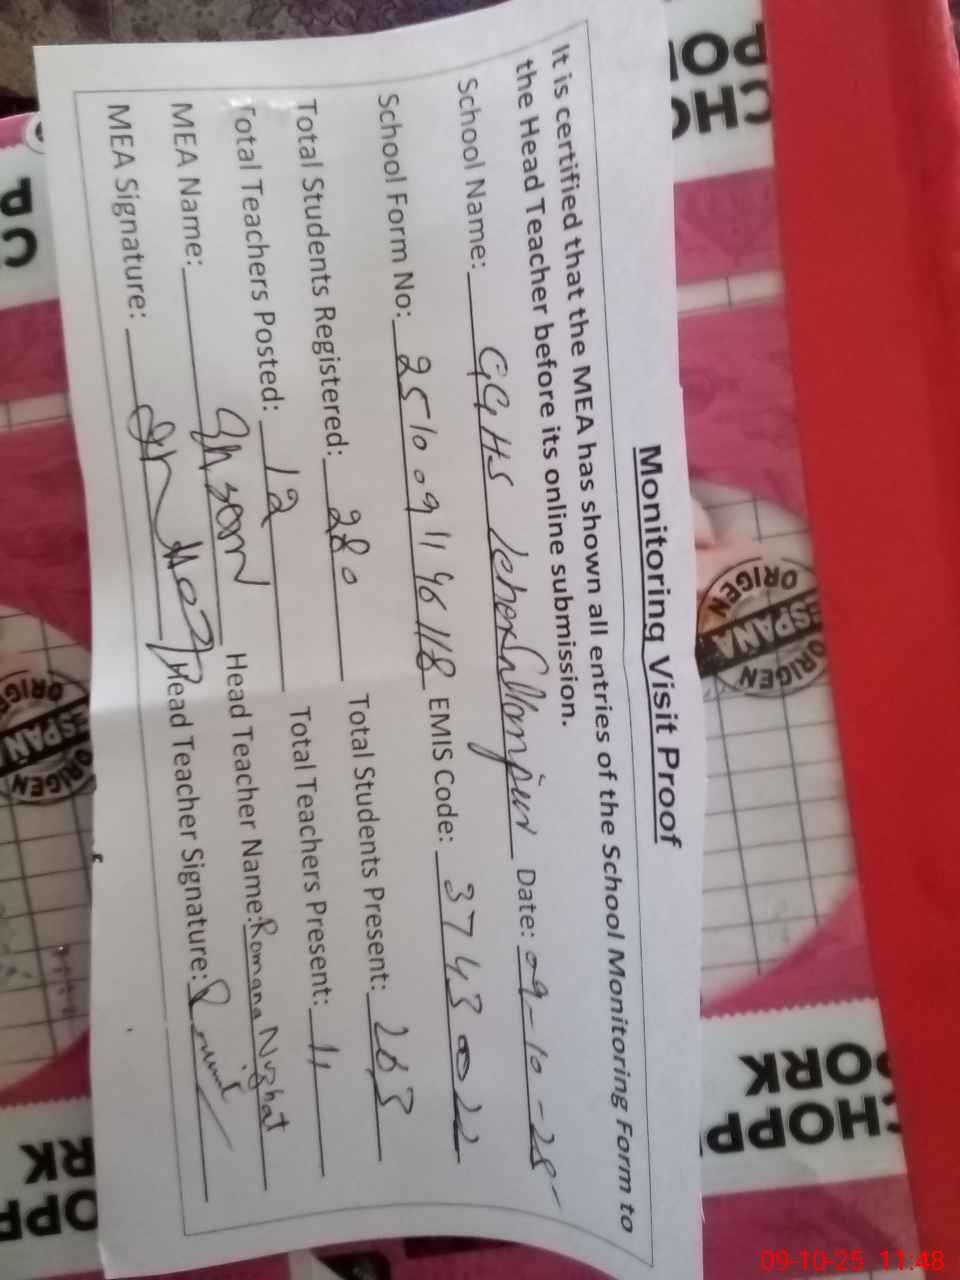 Monitoring Visit Proof
It is certified that the MEA has shown all entries of the School Monitoring Form to
the Head Teacher before its online submission.
School Name: GGHS Date: 09-10-25
School Form No: 2510091196118 EMIS Code: 37430022
Total Students Registered: 280 Total Students Present: 263
Total Teachers Posted: 12 Total Teachers Present: 11
MEA Name: Head Teacher Name: Romana Nuzhat
MEA Signature: Head Teacher Signature:
ORIGEN
ESPAÑA
ORIGEN
CHOPP
ORK
09-10-25 11:48